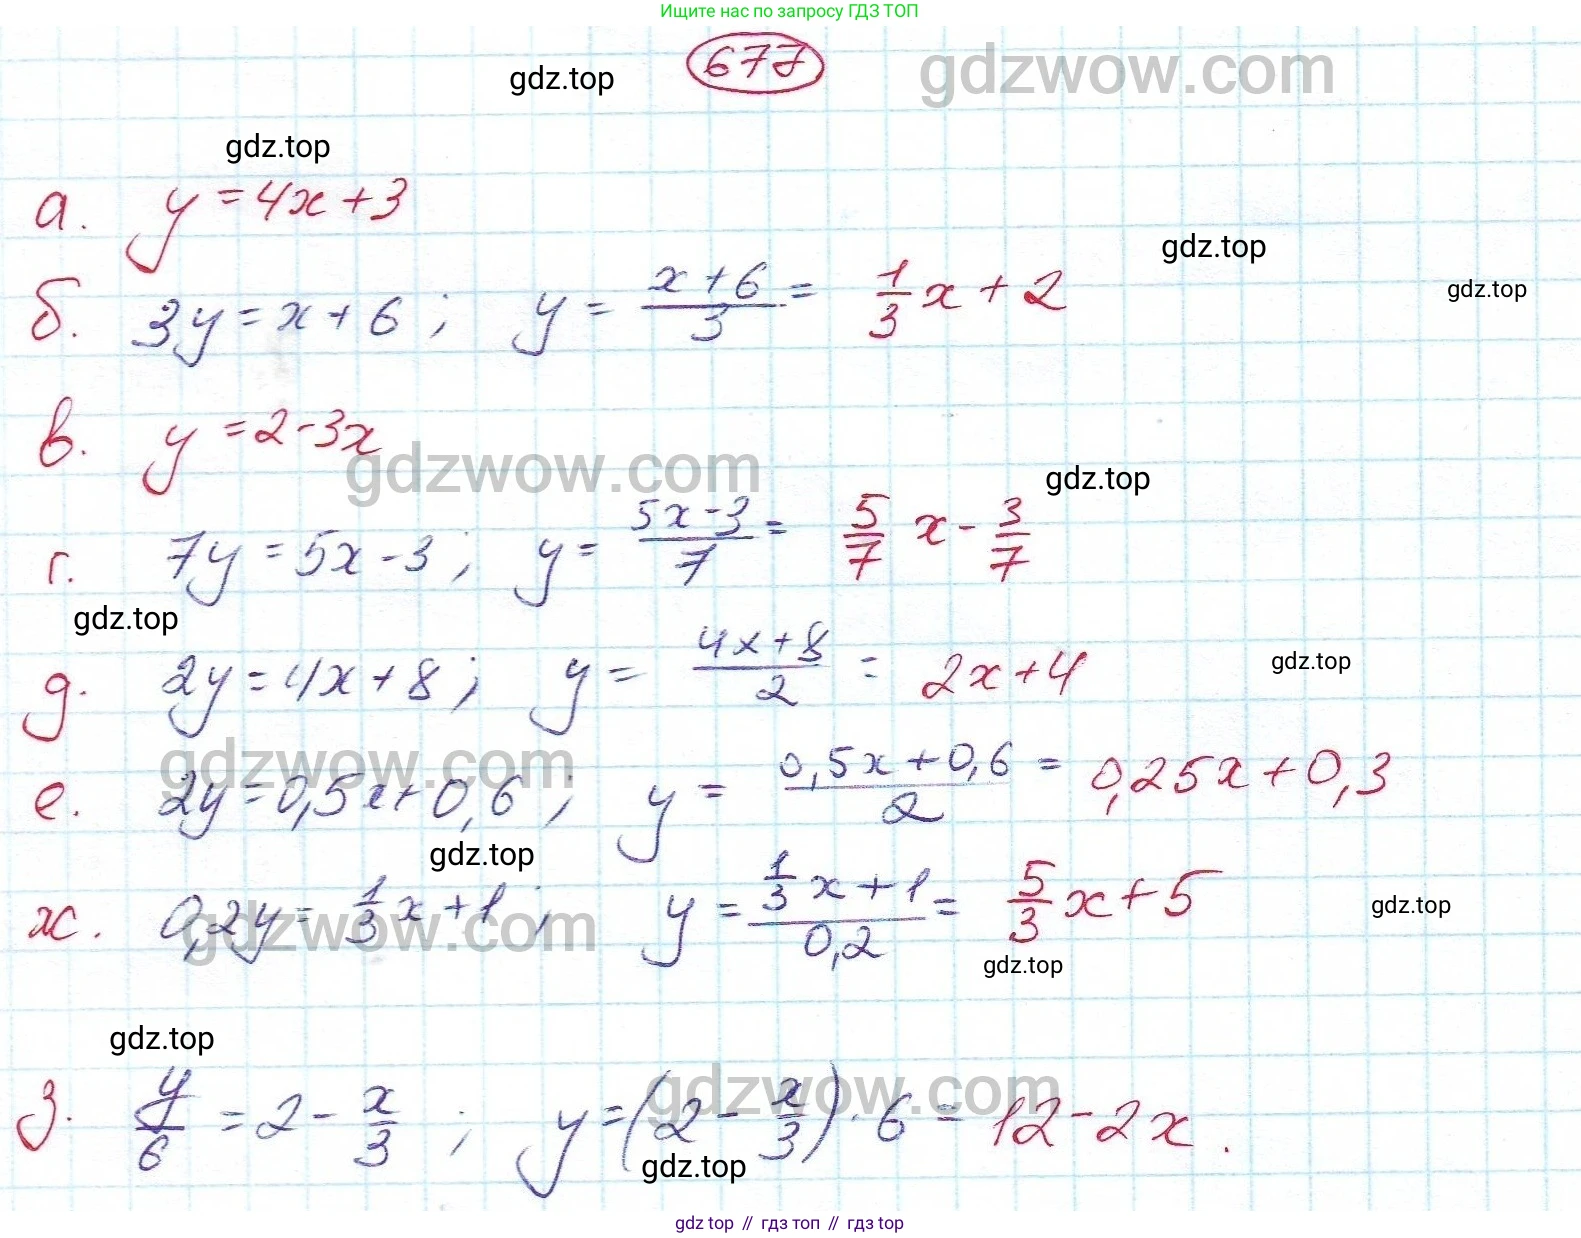 Ищите нас по запросу ГДЗ ТОП
677
gdz.top
gdzwow.com
gdz.top
а. y = 4x + 3
gdz.top
б. 3y = x + 6 ; y = \frac{x + 6}{3} = \frac{1}{3}x + 2
gdz.top
в. y = 2 - 3x
gdzwow.com
gdz.top
г. 7y = 5x - 3 ; y = \frac{5x - 3}{7} = \frac{5}{7}x - \frac{3}{7}
gdz.top
д. 2y = 4x + 8 ; y = \frac{4x + 8}{2} = 2x + 4
gdz.top
gdzwow.com
е. 2y = 0,5x + 0,6 ; y = \frac{0,5x + 0,6}{2} = 0,25x + 0,3
gdz.top
ж. 0,2y = \frac{1}{3}x + 1 ; y = \frac{\frac{1}{3}x + 1}{0,2} = \frac{5}{3}x + 5
gdz.top
gdzwow.com
gdz.top
gdz.top
gdzwow.com
з. \frac{y}{6} = 2 - \frac{x}{3} ; y = (2 - \frac{x}{3}) · 6 = 12 - 2x.
gdz.top
gdz top // гдз топ // гдз top